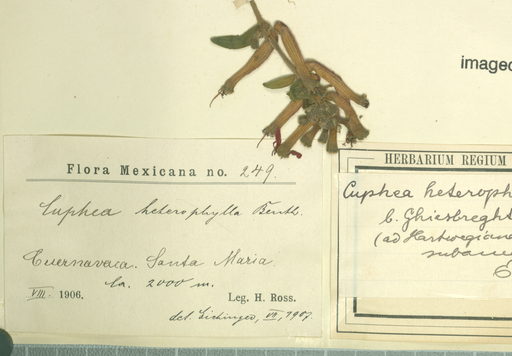 imaged
Flora Mexicana no. 249.
Cuphea heterophylla Benth.
Cuernavaca. Santa Maria.
Ca. 2000 m.
VIII. 1906.
Leg. H. Ross.
det. VII, 1907.
HERBARIUM REGIUM
Cuphea heteroph
b. Ghiesbreght
(ad Hartwegiana